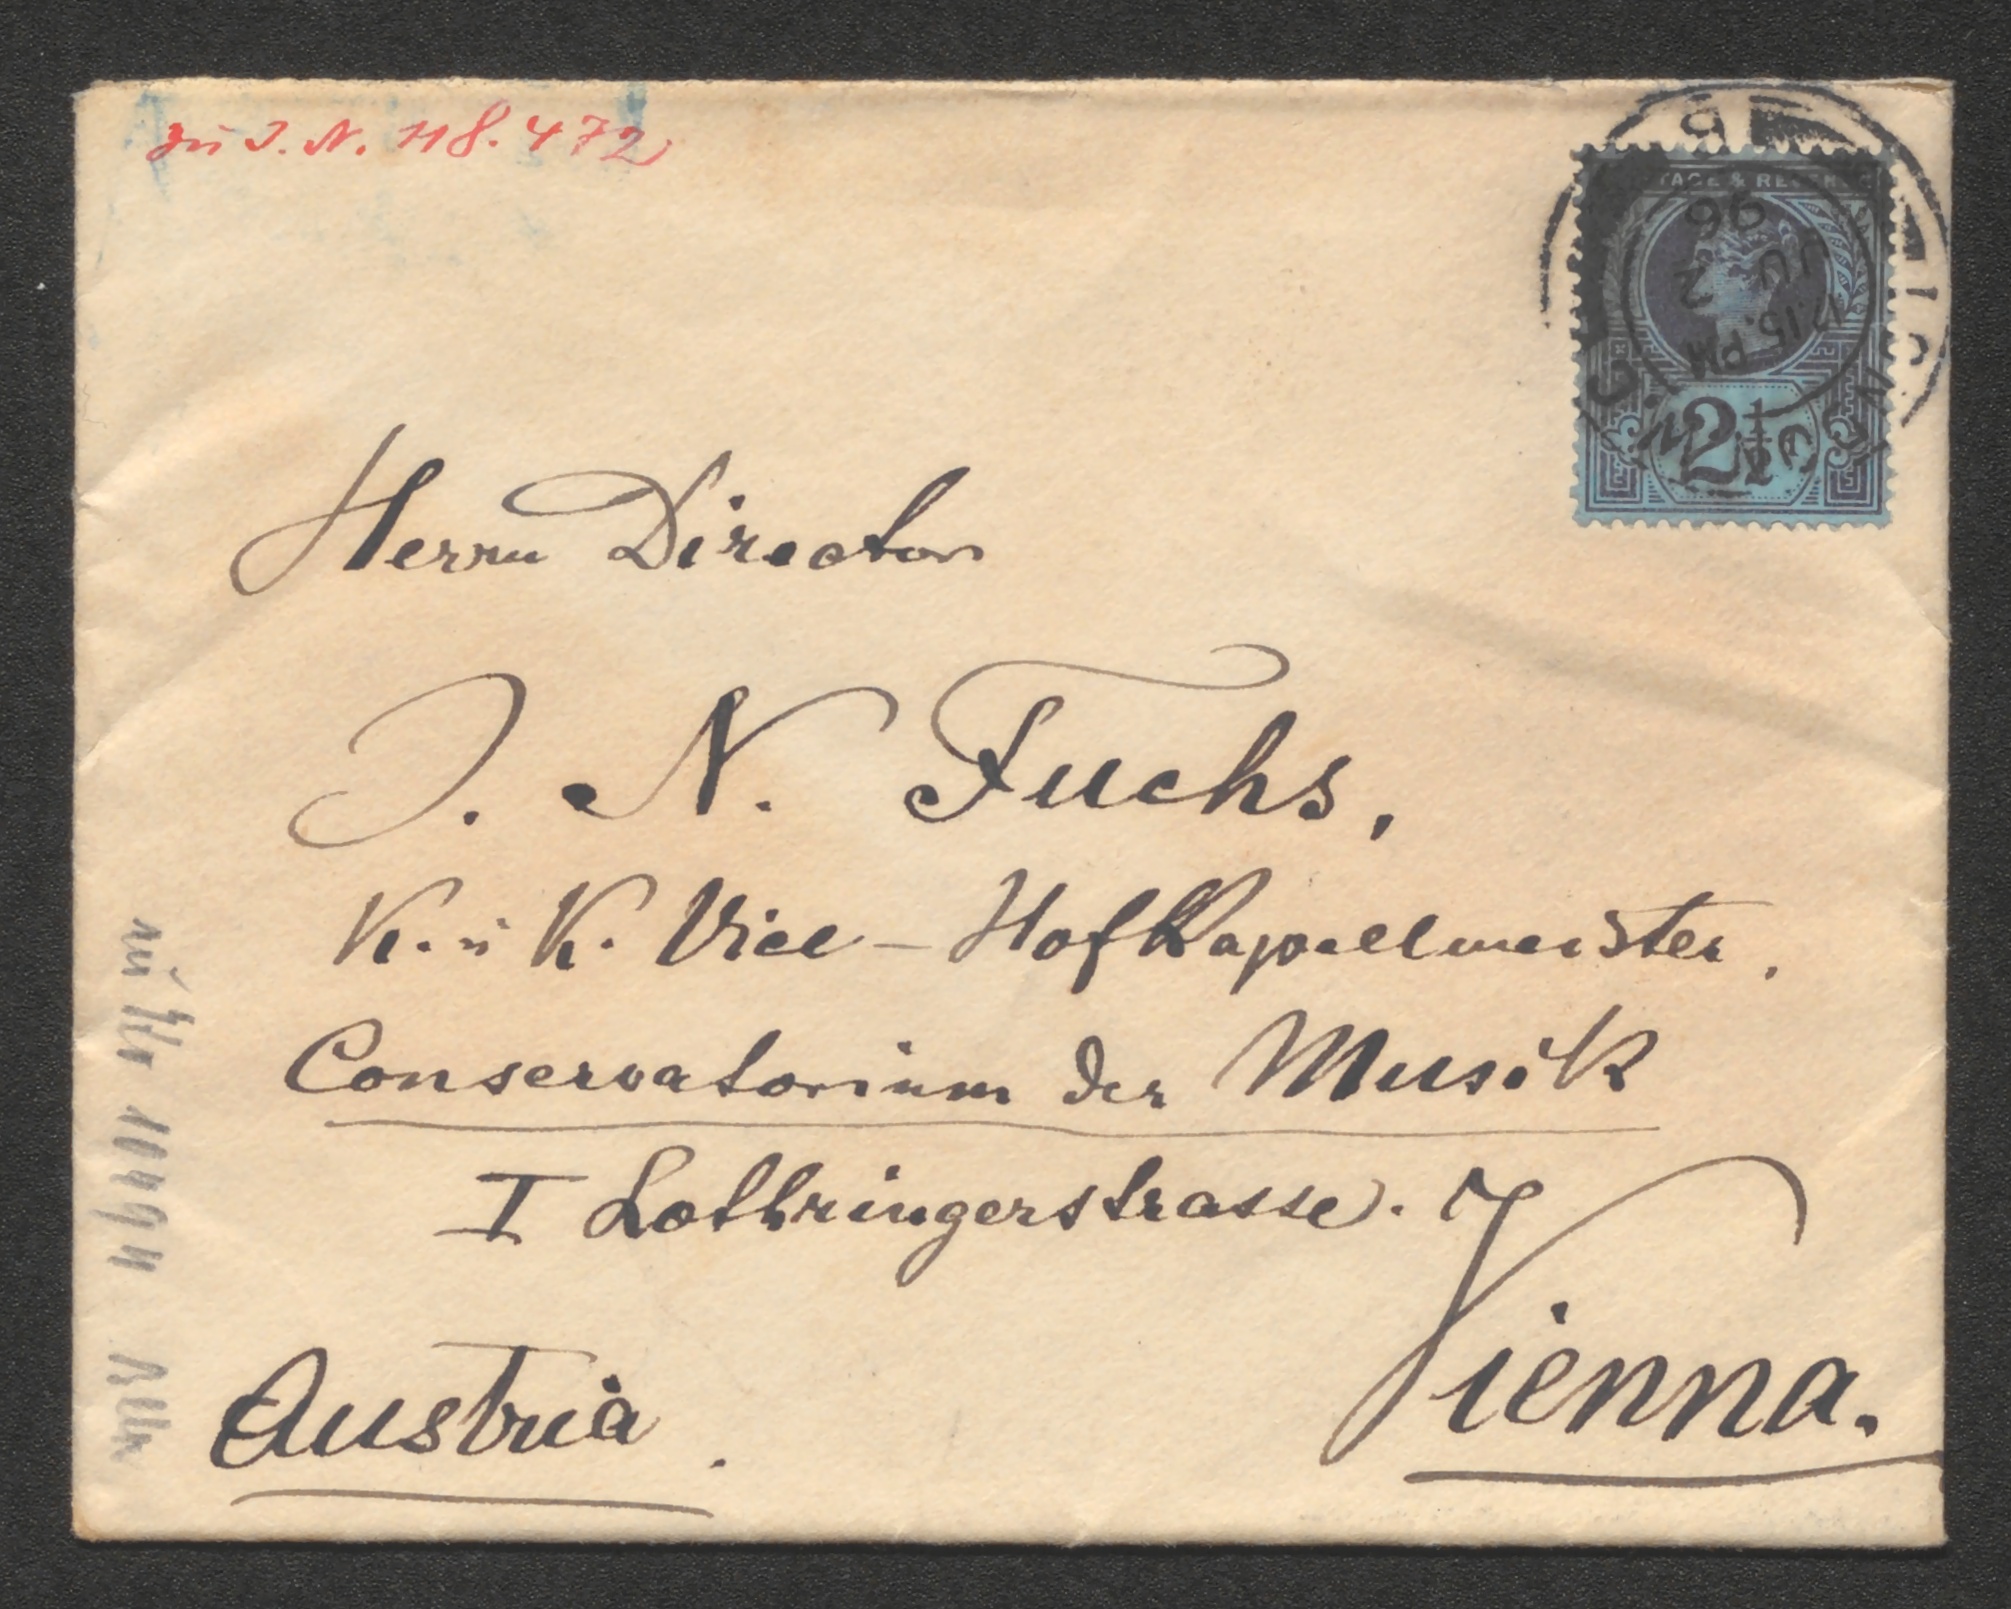 zu I. N. 118.472
TAGE & REVENUE
96
JU 2
12 15. PM
2½
Herrn Director
J. N. Fuchs,
K. u K. Vice - Hofkapellmeister.
Conservatorium der Musik
I Lothringerstrasse. 7
Vienna.
Austria.